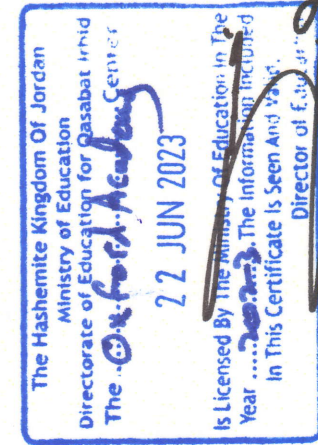 The Hashemite Kingdom Of Jordan
Ministry of Education
Directorate of Education for Qasabat Irbid
The Oxford Academy Center
22 JUN 2023
Is Licensed By The Ministry Of Education In The
Year ..... The Information Included
In This Certificate Is Seen And
Director of